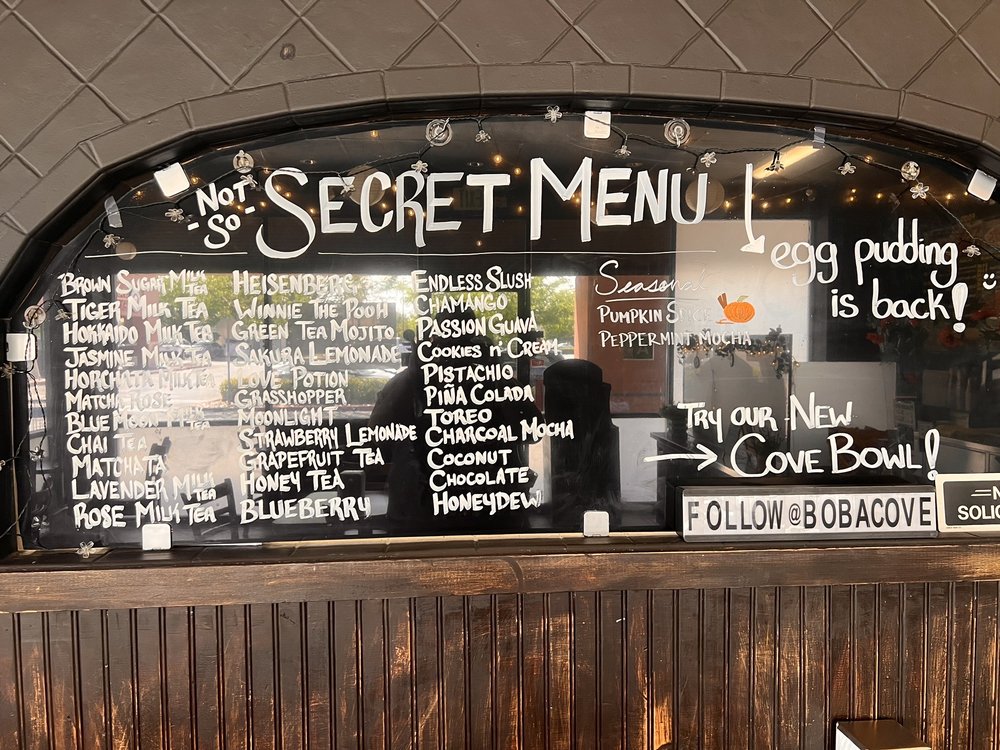 -NOT SO- SECRET MENU
BROWN SUGAR MILK TEA
TIGER MILK TEA
HOKKAIDO MILK TEA
JASMINE MILK TEA
HORCHATA MILK TEA
MATCHA ROSE
BLUE MOON MILK TEA
CHAI TEA
MATCHATA
LAVENDER MILK TEA
ROSE MILK TEA
HEISENBERG
WINNIE THE POOH
GREEN TEA MOJITO
SAKURA LEMONADE
LOVE POTION
GRASSHOPPER
MOONLIGHT
STRAWBERRY LEMONADE
GRAPEFRUIT TEA
HONEY TEA
BLUEBERRY
ENDLESS SLUSH
CHAMANGO
PASSION GUAVA
COOKIES N' CREAM
PISTACHIO
PIÑA COLADA
TOREO
CHARCOAL MOCHA
COCONUT
CHOCOLATE
HONEYDEW
Seasonal
PUMPKIN SPICE
PEPPERMINT MOCHA
egg pudding
is back!
TRY OUR NEW
COVE BOWL!
FOLLOW@BOBACOVE